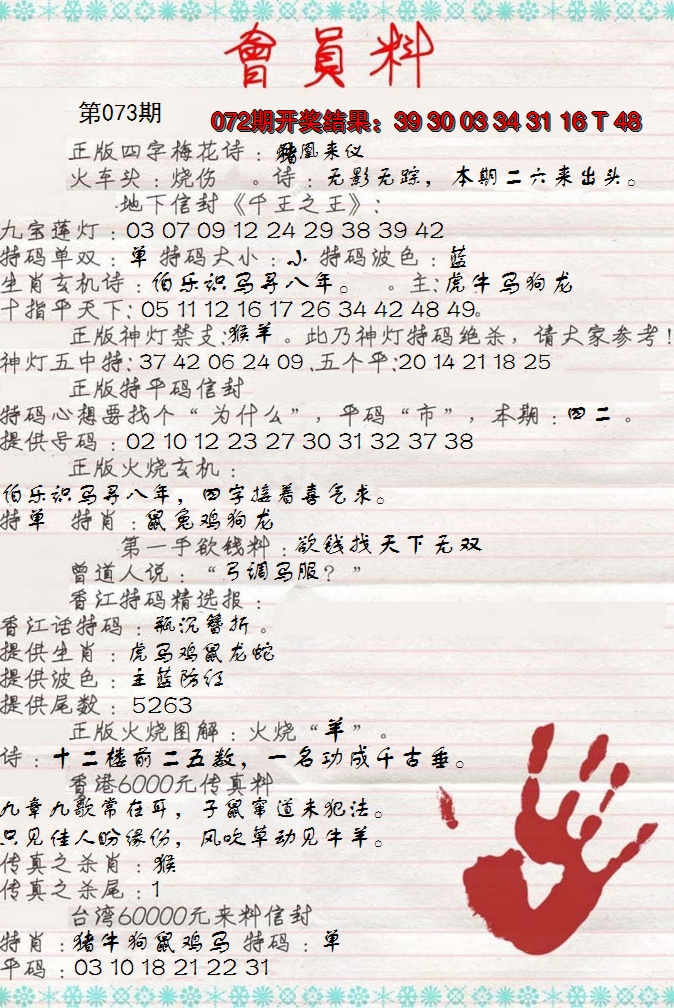 會員料
第073期
072期开奖结果：39 30 03 34 31 16 T 48
正版四字梅花诗：猪凰来仪
火车头：烧伤 。诗：无影无踪，本期二六来出头。
地下信封《千王之王》：
九宝莲灯：03 07 09 12 24 29 38 39 42
特码单双：单 特码大小：小 特码波色：蓝
生肖玄机诗：伯乐识马寻八年。 。主：虎牛马狗龙
十指平天下：05 11 12 16 17 26 34 42 48 49。
正版神灯禁支：猴羊。此乃神灯特码绝杀，请大家参考！
神灯五中特：37 42 06 24 09 .五个平：20 14 21 18 25
正版特平码信封
特码心想要找个“为什么”，平码“市”，本期：四二。
提供号码：02 10 12 23 27 30 31 32 37 38
正版火烧玄机：
伯乐识马寻八年，四字接着喜气求。
特单 特肖：鼠兔鸡狗龙
第一手欲钱料：欲钱找天下无双
曾道人说：“弓调马服？”
香江特码精选报：
香江话特码：瓶沉簪折。
提供生肖：虎马鸡鼠龙蛇
提供波色：主蓝防红
提供尾数：5263
正版火烧图解：火烧“羊”。
诗：十二楼前二五数，一名功成千古垂。
香港6000元传真料
九章九歌常在耳，子鼠窜道未犯法。
只见佳人盼缘份，风吹草动见牛羊。
传真之杀肖：猴
传真之杀尾：1
台湾60000元来料信封
特肖：猪牛狗鼠鸡马 特码：单
平码：03 10 18 21 22 31